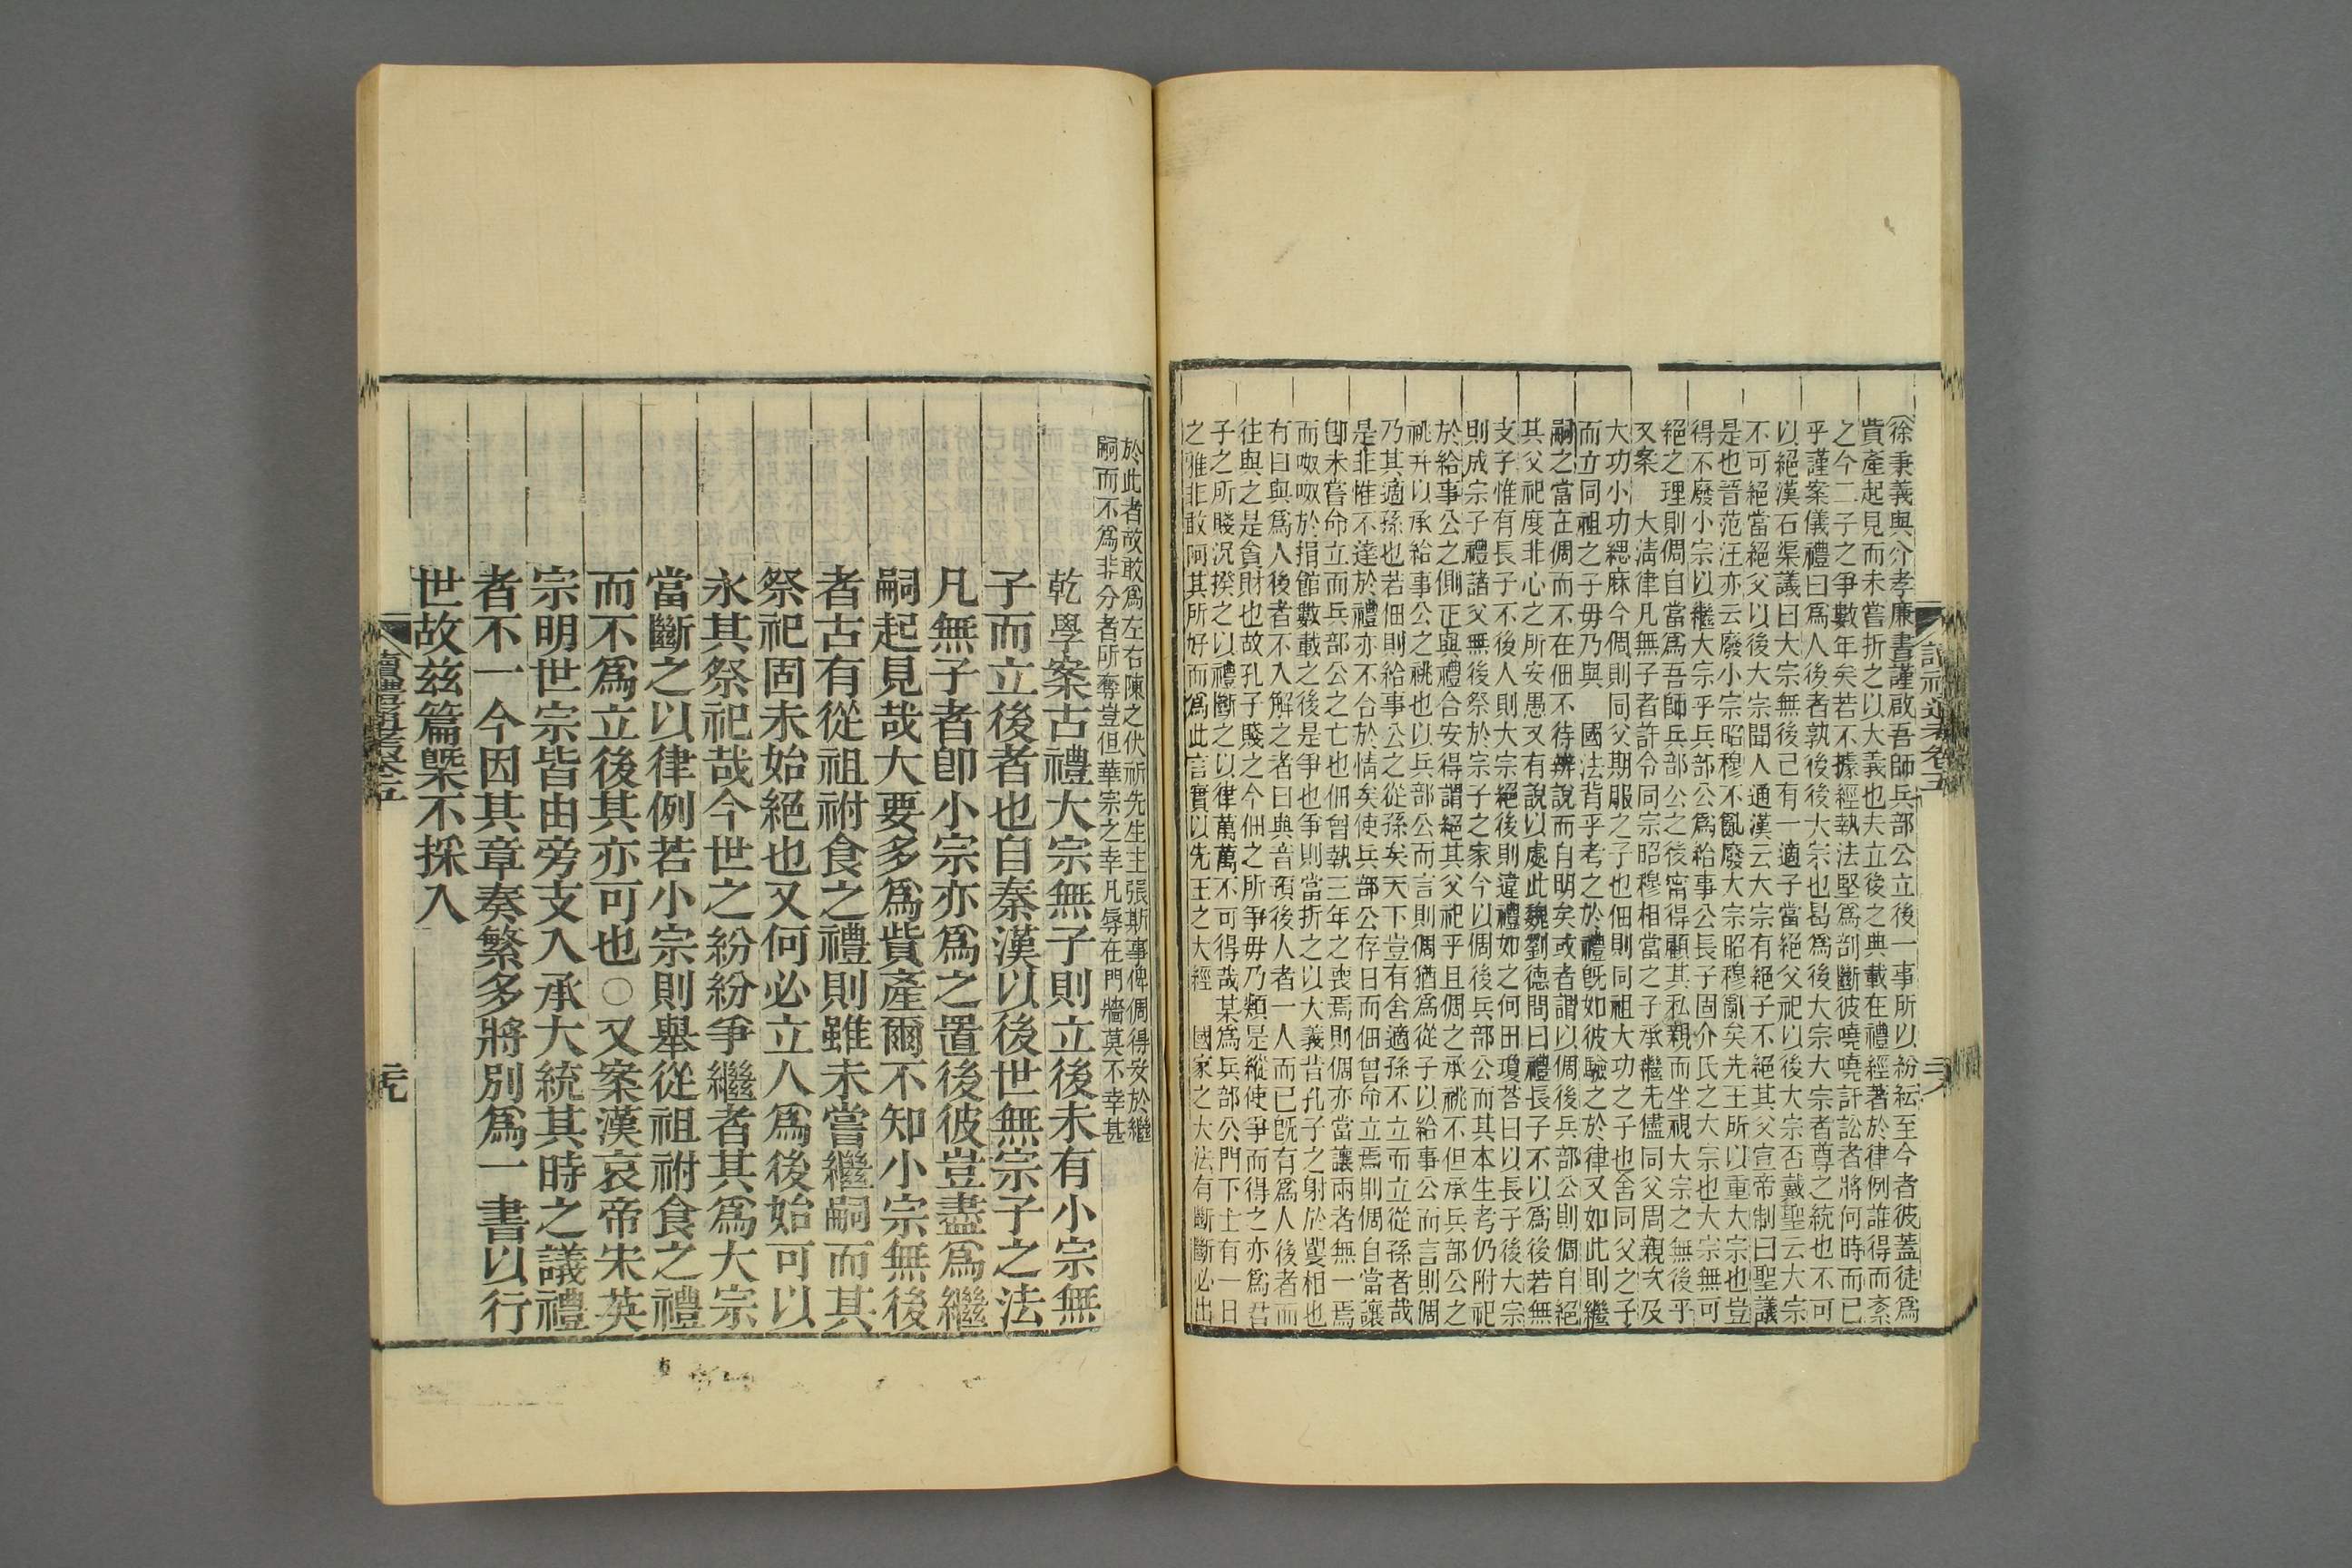 徐秉義與介孝廉書謹啟吾師兵部公立後一事所以紛紜至今者彼蓋徒爲
貲產起見而未嘗折之以大義也夫立後之典載在禮經著於律例誰得而紊
之今二子之爭數年矣若不據經執法堅爲剖斷彼嘵嘵訐訟者將何時而已
乎謹案儀禮曰爲人後者孰後後大宗也曷爲後大宗大宗者尊之統也不可
以絕漢石渠議曰大宗無後己有一適子當絕父祀以後大宗否戴聖云大宗
不可絕當絕父以後大宗聞人通漢云大宗有絕子不絕其父宣帝制曰聖議
是也晉范汪亦云廢小宗昭穆不亂廢大宗昭穆亂矣先王所以重大宗也豈
得不廢小宗以繼大宗乎兵部公爲給事公長子固介氏之大宗也大宗無可
絕之理則倜自當爲吾師兵部公之後甯得顧其私親而坐視大宗之無後乎
又案 大淸律凡無子者許令同宗昭穆相當之子承繼先儘同父周親次及
大功小功緦麻今倜則同父期服之子也佃則同祖大功之子也舍同父之子
而立同祖之子毋乃與 國法背乎考之於禮旣如彼驗之於律又如此則繼
嗣之當在倜而不在佃不待辨說而自明矣或者謂以倜後兵部公則倜自絕
其父祀度非心之所安愚又有說以處此魏劉德問曰禮長子不以爲後若無
支子惟有長子不後人則大宗絕後則違禮如之何田瓊荅曰以長子後大宗
則成宗子禮諸父無後祭於宗子之家今以倜後兵部公而其本生考仍附祀
於給事公之側正與禮合安得謂絕其父祀乎且倜之承祧不但承兵部公之
祧幷以承給事公之祧也以兵部公而言則倜猶爲從子以給事公而言則倜
乃其適孫也若佃則給事公之從孫矣天下豈有舍適孫不立而立從孫者哉
是非惟不達於禮亦不合於情矣使兵部公存日而佃曾命立焉則倜自當讓
卽未嘗命立而兵部公之亡也佃曾執三年之喪焉則倜亦當讓兩者無一焉
而呶呶於捐館數載之後是爭也爭則當折之以大義昔孔子之射於矍相也
有曰與爲人後者不入解之者曰與音預後人者一人而已旣有爲人後者而
往與之是貪財也故孔子賤之今佃之所爭毋乃類是縱使爭而得之亦爲君
子之所賤況揆之以禮斷之以律萬萬不可得哉某爲兵部公門下士有一日
之雅非敢阿其所好而爲此言實以先王之大經 國家之大法有斷斷必出
讀禮通考卷五
於此者故敢爲左右陳之伏祈先生主張斯事俾倜得安於繼
嗣而不爲非分者所奪豈但華宗之幸凡辱在門牆莫不幸甚
乾學案古禮大宗無子則立後未有小宗無
子而立後者也自秦漢以後世無宗子之法
凡無子者卽小宗亦爲之置後彼豈盡爲繼
嗣起見哉大要多爲貲產爾不知小宗無後
者古有從祖祔食之禮則雖未嘗繼嗣而其
祭祀固未始絕也又何必立人爲後始可以
永其祭祀哉今世之紛紛爭繼者其爲大宗
當斷之以律例若小宗則舉從祖祔食之禮
而不爲立後其亦可也○又案漢哀帝宋英
宗明世宗皆由旁支入承大統其時之議禮
者不一今因其章奏繁多將別爲一書以行
世故茲篇槩不採入
讀禮通考卷五